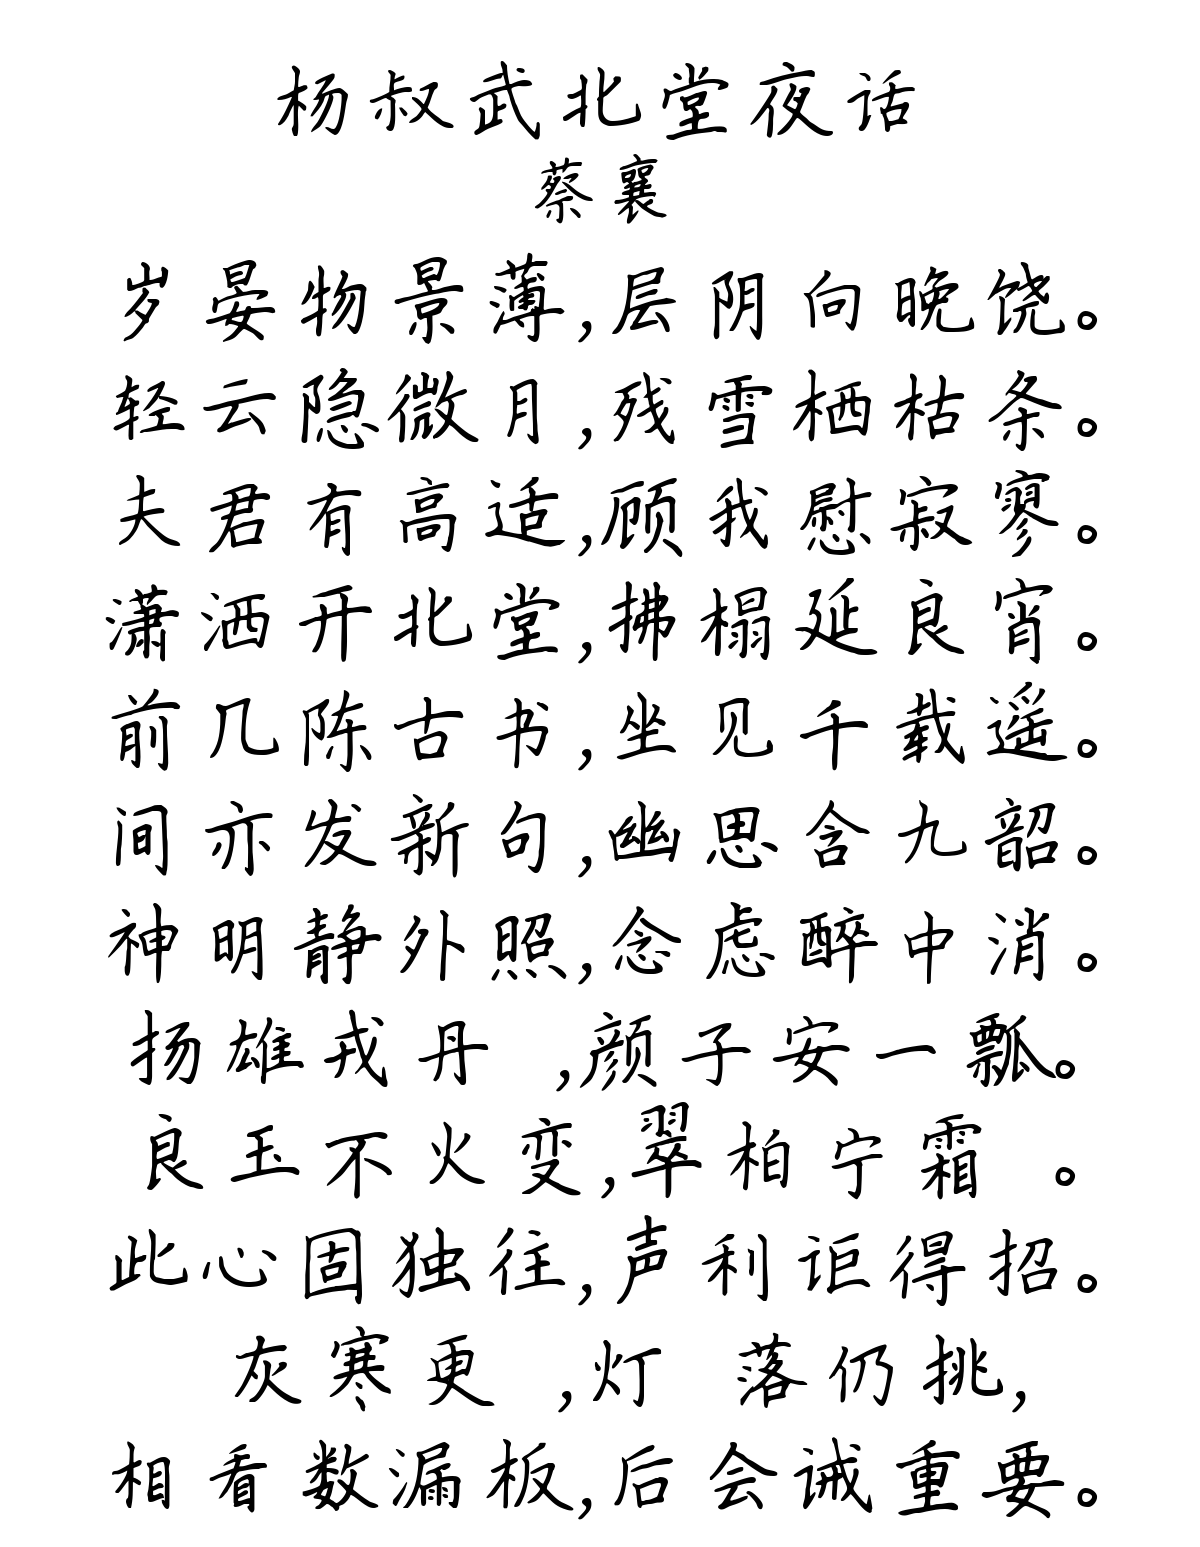 杨叔武北堂夜话
蔡襄
岁晏物景薄,层阴向晚饶。
轻云隐微月,残雪栖枯条。
夫君有高适,顾我慰寂寥。
潇洒开北堂,拂榻延良宵。
前几陈古书,坐见千载遥。
间亦发新句,幽思含九韶。
神明静外照,念虑醉中消。
扬雄戎丹 ,颜子安一瓢。
良玉不火变,翠柏宁霜 。
此心固独往,声利讵得招。
灰寒更 ,灯 落仍挑,
相看数漏板,后会诫重要。